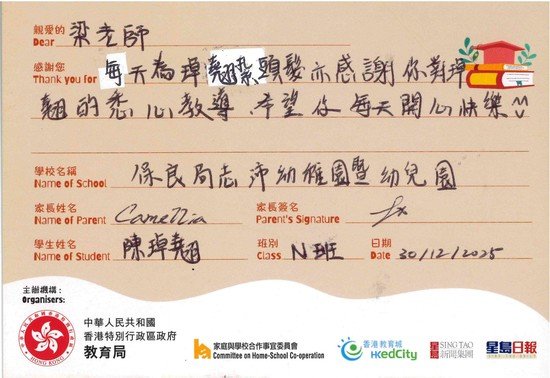 親愛的 梁老師
Dear
感謝您 每天為瑋翹紮頭髮亦感謝你對瑋
Thank you for
翹的悉心教導,希望你每天開心快樂
學校名稱 保良局志沛幼稚園暨幼兒園
Name of School
家長姓名 Camellia 家長簽名
Name of Parent Parent's Signature
學生姓名 陳瑋翹 班別 N班 日期 30/12/2025
Name of Student Class Date
主辦機構:
Organisers:
中華人民共和國
香港特別行政區政府
教育局
HONG KONG
家庭與學校合作事宜委員會
Committee on Home-School Co-operation
香港教育城
HKedCity
星島 SING TAO
新聞集團
星島日報